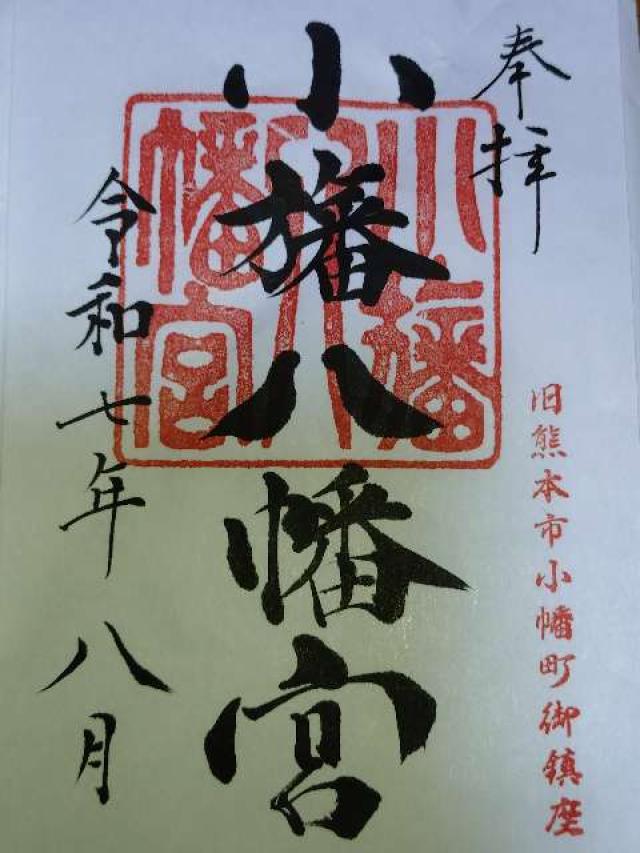 奉拝
旧熊本市小幡町御鎮座
小旛八幡宮
小旛
八
幡宮
令和七年八月